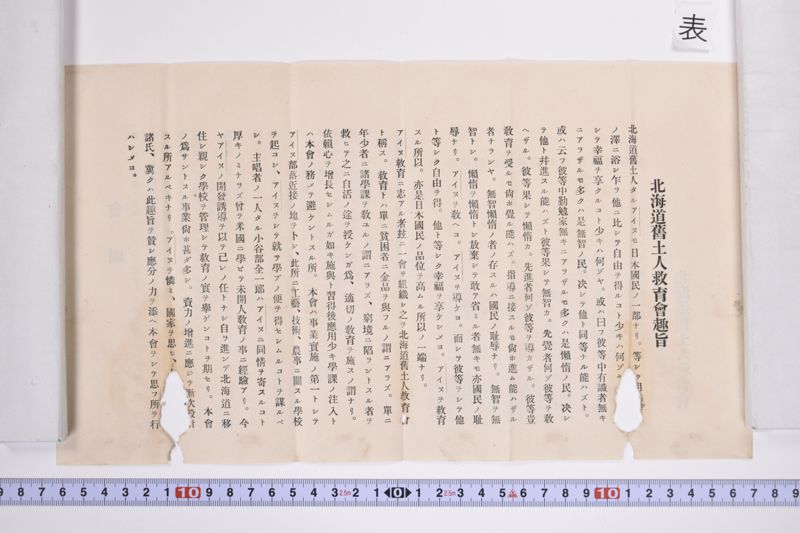 表
北海道舊土人救育會趣旨
北海道舊土人タルアイヌモ日本國民ノ一部ナリ。等シク
ノ澤ニ浴シ乍ラ他ニ比シテ自由ヲ得ルコト少キハ何ゾヤ
シテ幸福ヲ享クルコト少キハ何ゾヤ。或ハ曰フ彼等中有識者無キ
ニアラザルモ多クハ是無智ノ民。决シテ他ト同等ナル能ハズト。
或ハ云フ彼等中勤勉家無キニアラザルモ多クハ是懶惰ノ民。决シ
テ他ト幷進スル能ハズト彼等果シテ無智カ。先覺者何ゾ彼等ヲ敎
ヘザル。彼等果シテ懶惰カ。先進者何ゾ彼等ヲ導カザル。彼等豈
敎育ヲ受ルモ尙ホ覺ル能ハズ。指導ニ接スルモ尙ホ進ム能ハザル
者ナランヤ。無智懶惰ノ者ノ存スルハ國民ノ耻辱ナリ。無智ヲ無
智トシ。懶惰ヲ懶惰トシ放棄シテ敢テ省ミル者無キモ亦國民ノ耻
辱ナリ。アイヌヲ敎ヘヨ。アイヌヲ導ケヨ。而シテ彼等ヲシテ他
ト等シク自由ヲ得。他ト等シク幸福ヲ享ケシメヨ。アイヌヲ敎育
スル所以。亦是日本國民ノ品位ヲ高ムル所以ノ一端ナリ。
アイヌ敎育ニ志アル者玆ニ一會ヲ組織シ之ヲ北海道舊土人救育會
ト稱ス。敎育トハ單ニ貧困者ニ金品ヲ與フルノ謂ニアラズ。單ニ
年少者ニ諸學課ヲ敎ユルノ謂ニアラズ、窮境ニ陷ラントスル者ヲ
救ヒテ之ニ自活ノ途ヲ授ケンガ爲、適切ノ敎育ヲ施スノ謂ナリ。
依賴心ヲ增長セシムルガ如キ施與ト習得後應用少キ學課ノ注入ト
ハ本會ノ務メテ避ケントスル所。本會ハ事業實施ノ第一トシテ
アイヌ部落近接ノ地ヲトシ、此所ニ工藝、技術、農事ニ關スル學校
ヲ起コシ、アイヌシテ就テ學ブノ便ヲ得セシムルコトヲ謀ルベ
シ。主唱者ノ一人タル小谷部全一郎ハアイヌニ同情ヲ寄スルコト
厚キノミナラズ曾テ米國ニ學ビテ未開人敎育ノ事ニ經驗アリ。今
ヤアイヌノ開發誘導ヲ以テ己レノ任トナシ自ヲ進ンデ北海道ニ移
住シ親シク學校ヲ管理シテ敎育ノ實ヲ擧ゲンコトヲ期セリ。本會
ノ爲サントスル事業尙ホ甚ダ多シ。資力ノ增進ニ應ジテ漸次
スル所アルベキナリ。アイヌヲ憐ミ、國家ヲ思ヒ、
諸氏、冀クハ此趣旨ヲ賛シ應分ノ力ヲ添ヘ本會ヲシテ思フ所ヲ行
ハシメヨ。